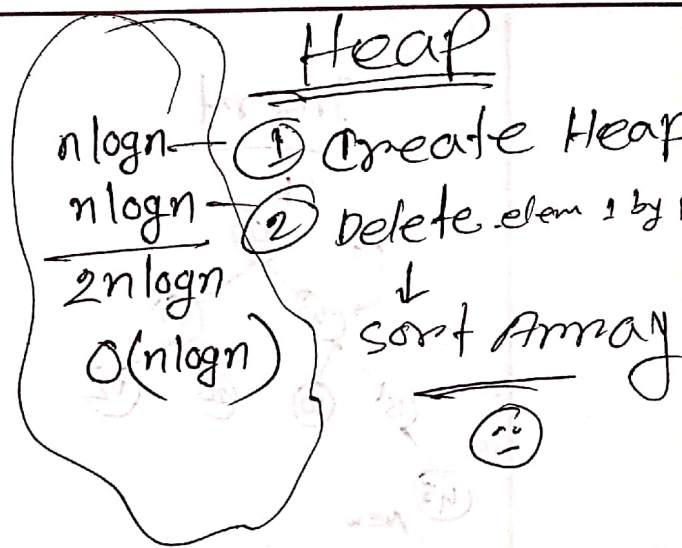 Heap
nlogn ① Create Heap
nlogn ② Delete elem 1 by
2nlogn ↓
O(nlogn) Sort Array